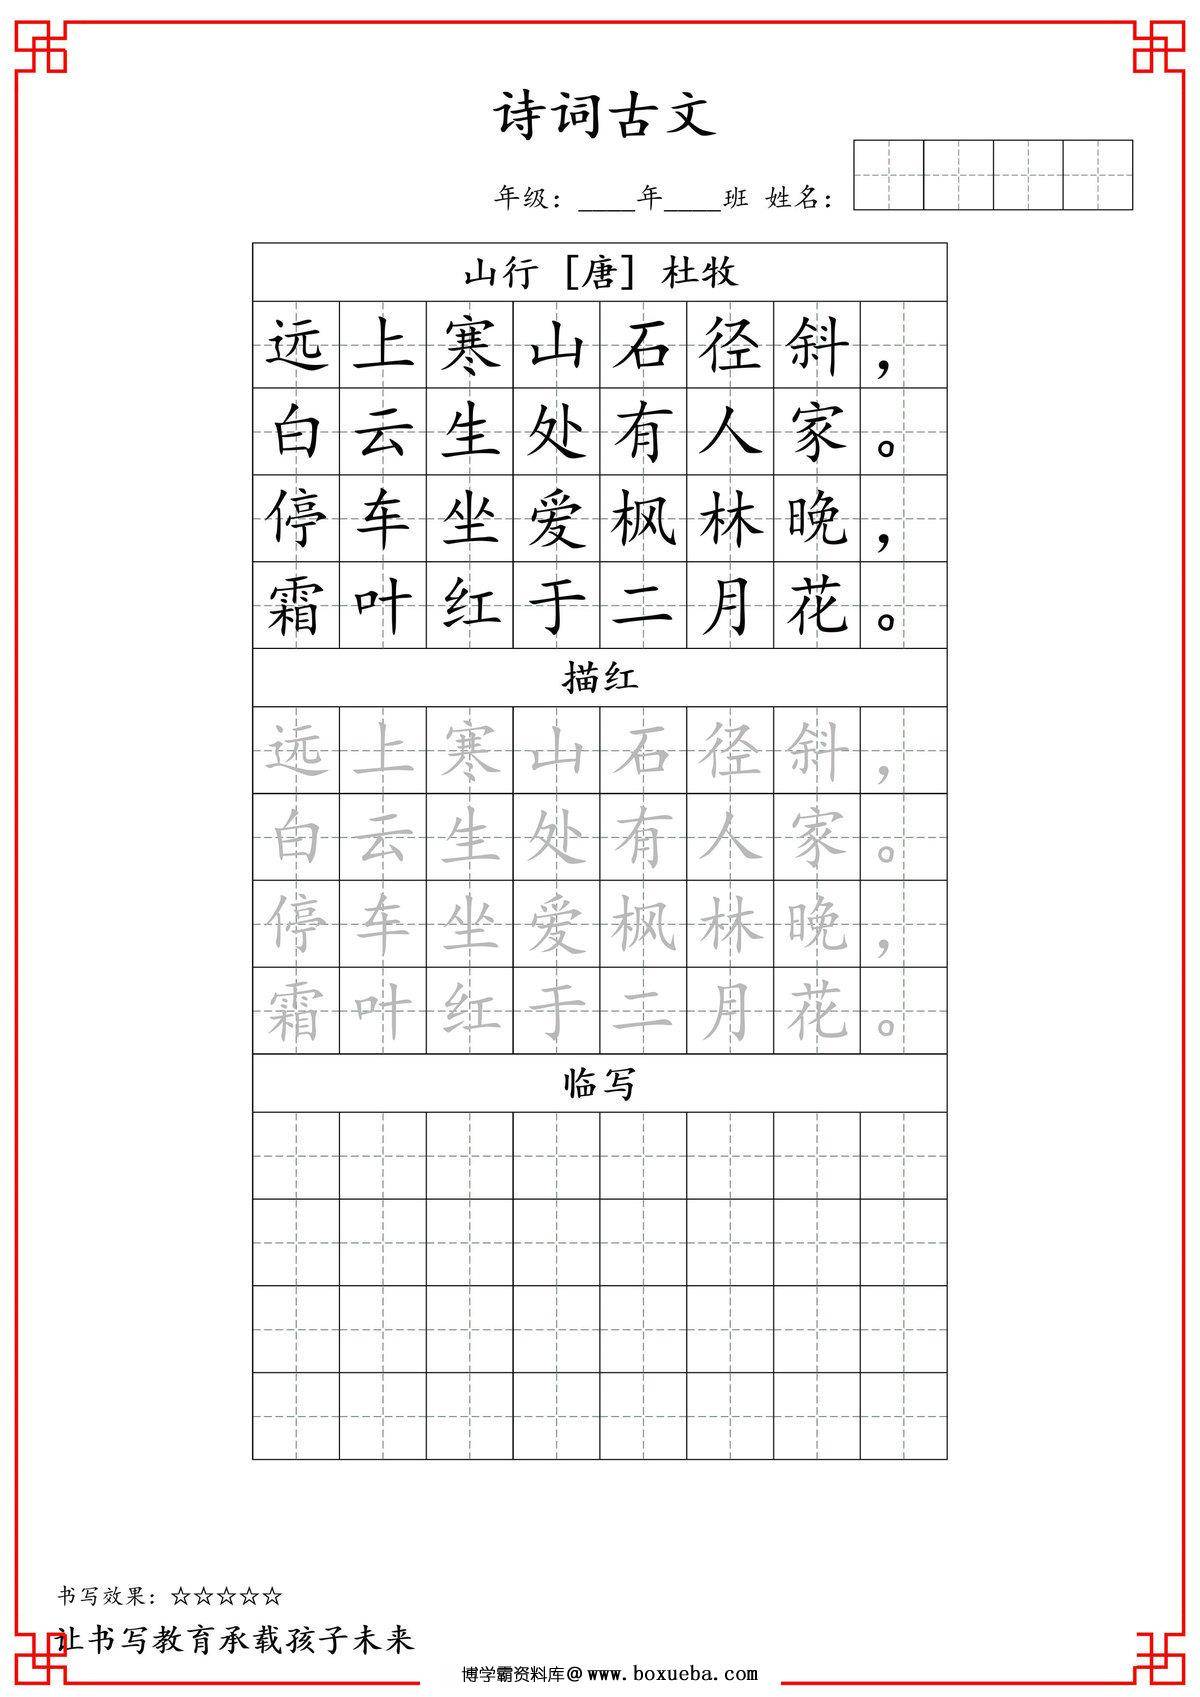 诗词古文
年级：____年____班 姓名：
山行 [唐] 杜牧
远上寒山石径斜，
白云生处有人家。
停车坐爱枫林晚，
霜叶红于二月花。
描红
远上寒山石径斜，
白云生处有人家。
停车坐爱枫林晚，
霜叶红于二月花。
临写
书写效果：☆☆☆☆☆
让书写教育承载孩子未来
博学霸资料库@www.boxueba.com